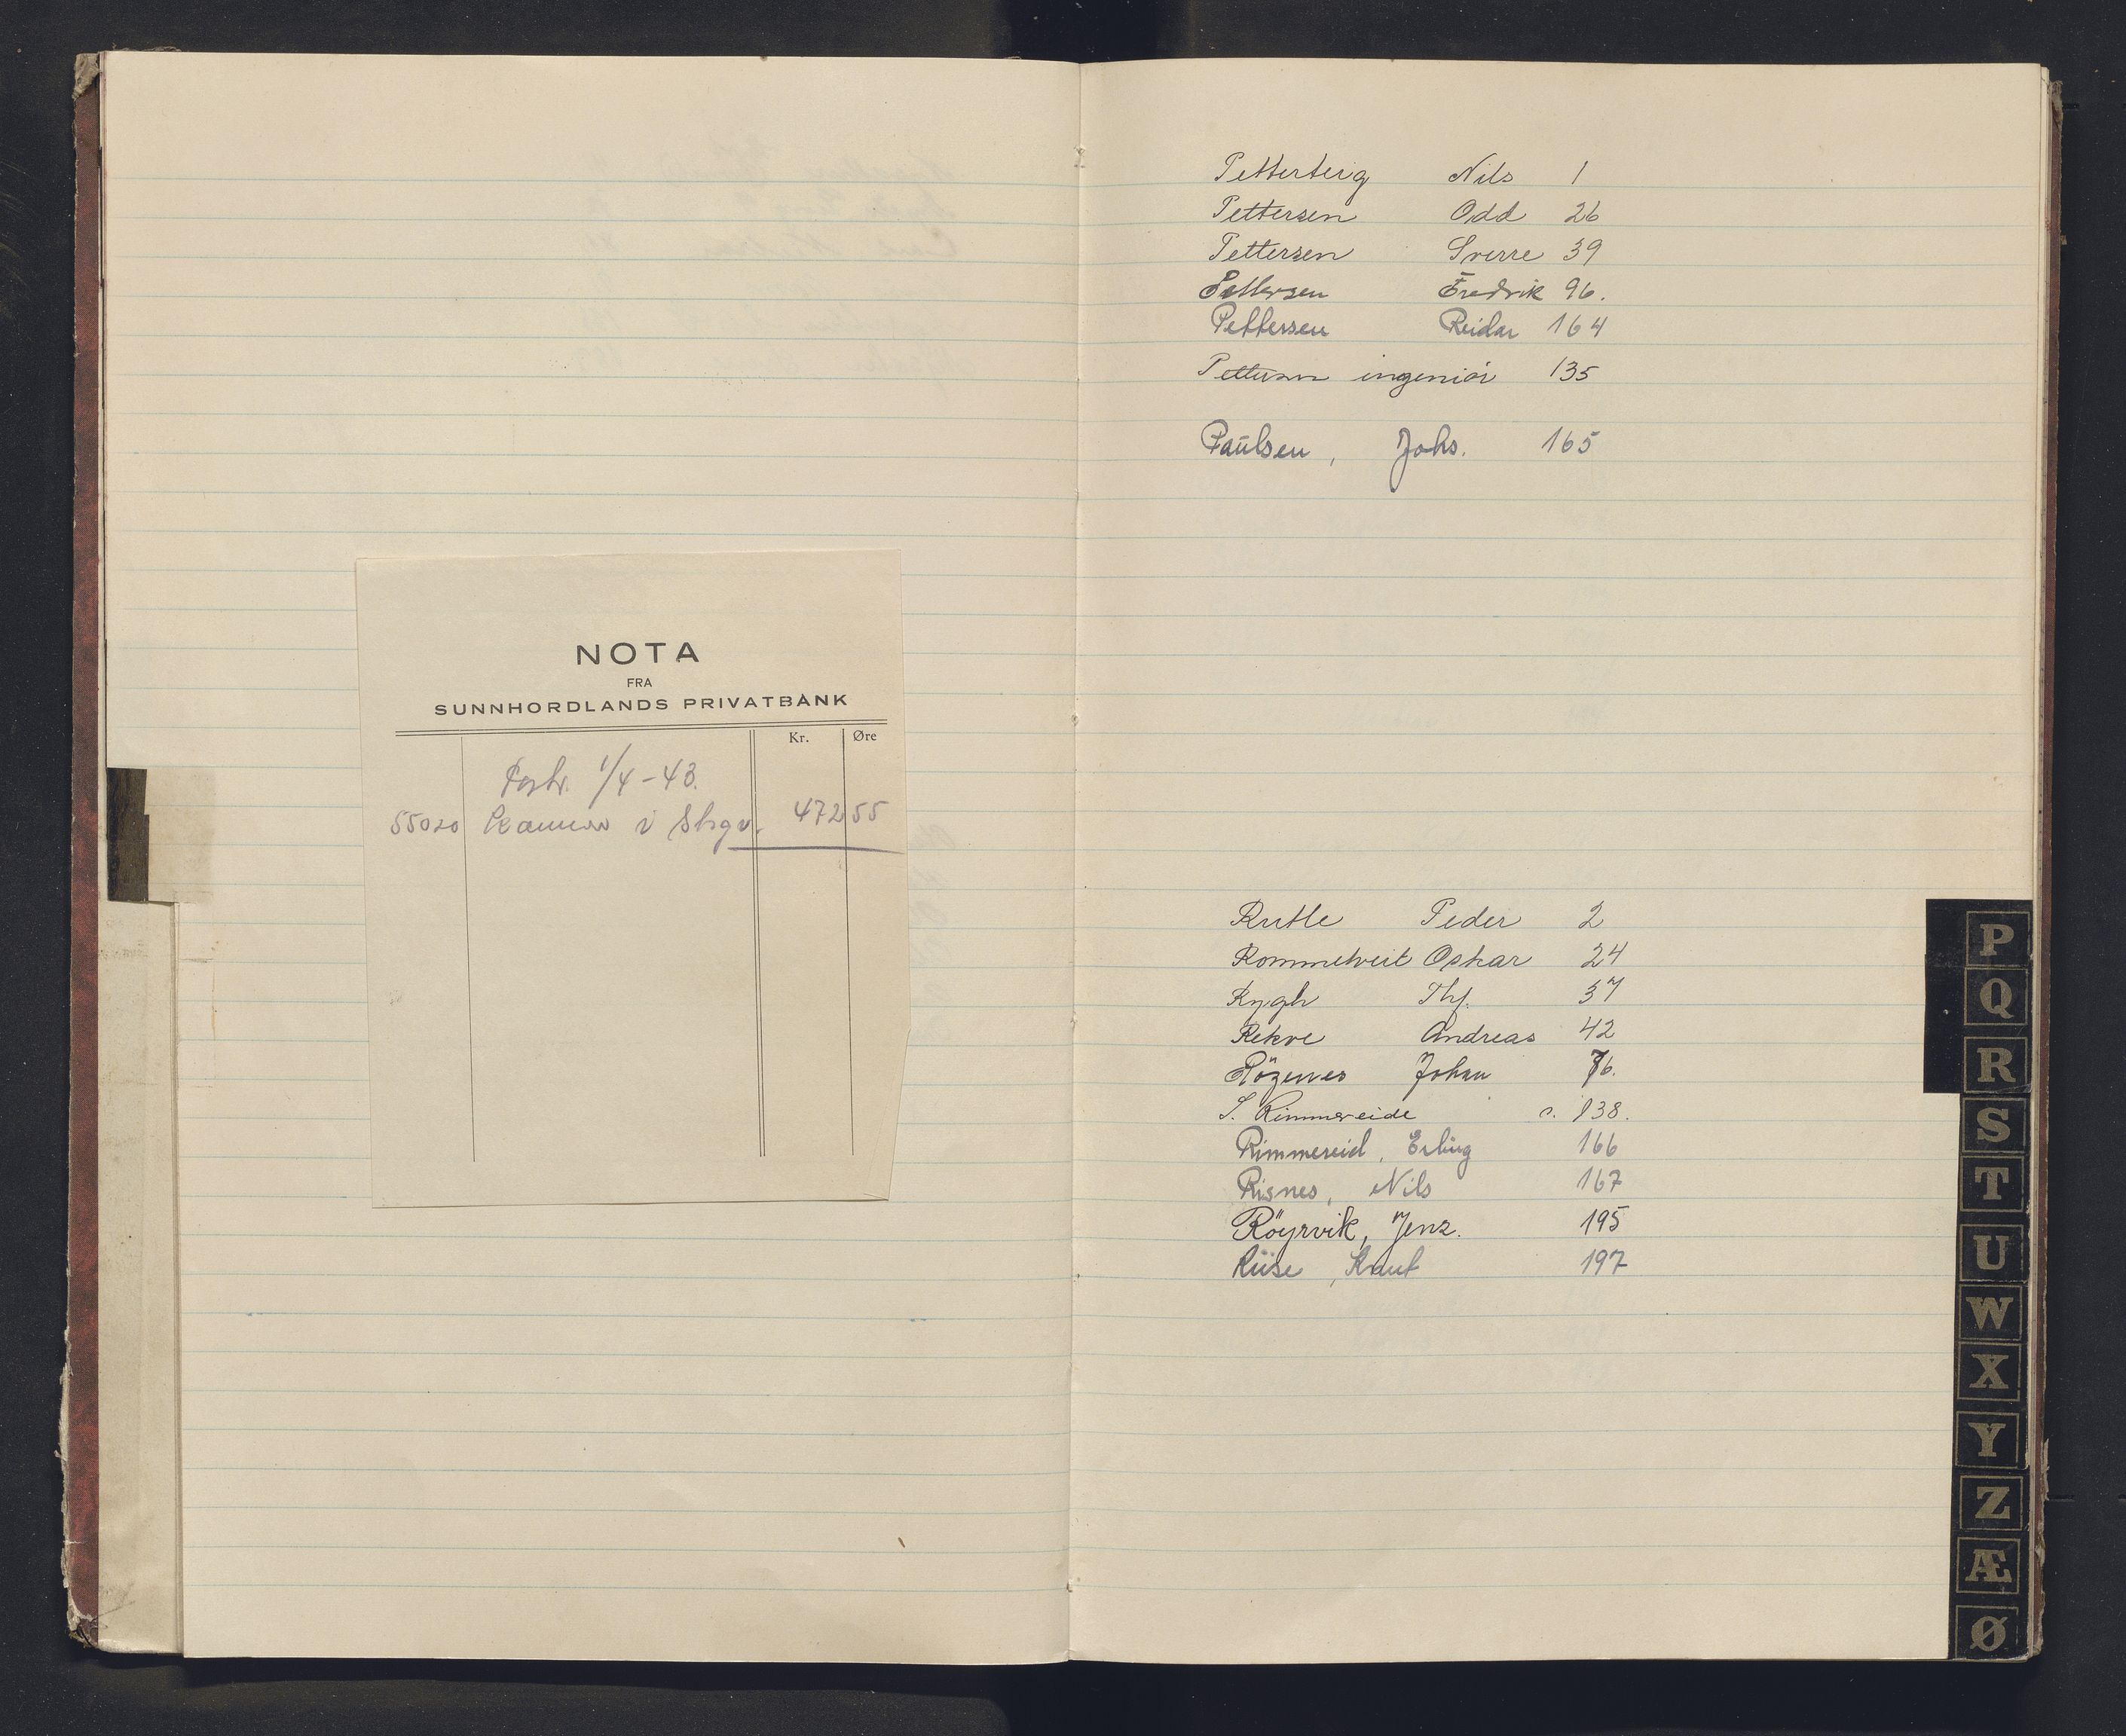 NOTA
FRA
SUNNHORDLANDS PRIVATBANK
Kr. Øre
1/4-43.
55020 i 472 55
Petterteig Nils 1
Pettersen Odd 26
Pettersen Sverre 39
Pettersen Fredrik 96.
Pettersen Reidar 164
Petterson ingeniör 135
Paulsen, Johs. 165
Rutle Peder 2
Rommetveit Oskar 24
Rygh Thf. 37
Rekve Andreas 42
Johan 76.
S. Rimmereide s. 138.
Rimmereid, Erling 166
Risnes, Nils 167
Röyrvik, Jens. 195
Riise, Knut 197
P
Q
R
S
T
U
W
X
Y
Z
Æ
Ø